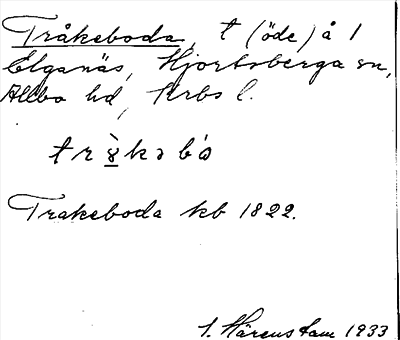 Tråkeboda, t (öde) å 1
Elganäs, Hjortsberga sn,
Allbo hd, Krbs l.
Trakeboda kb 1822.
S. Härenstam 1933